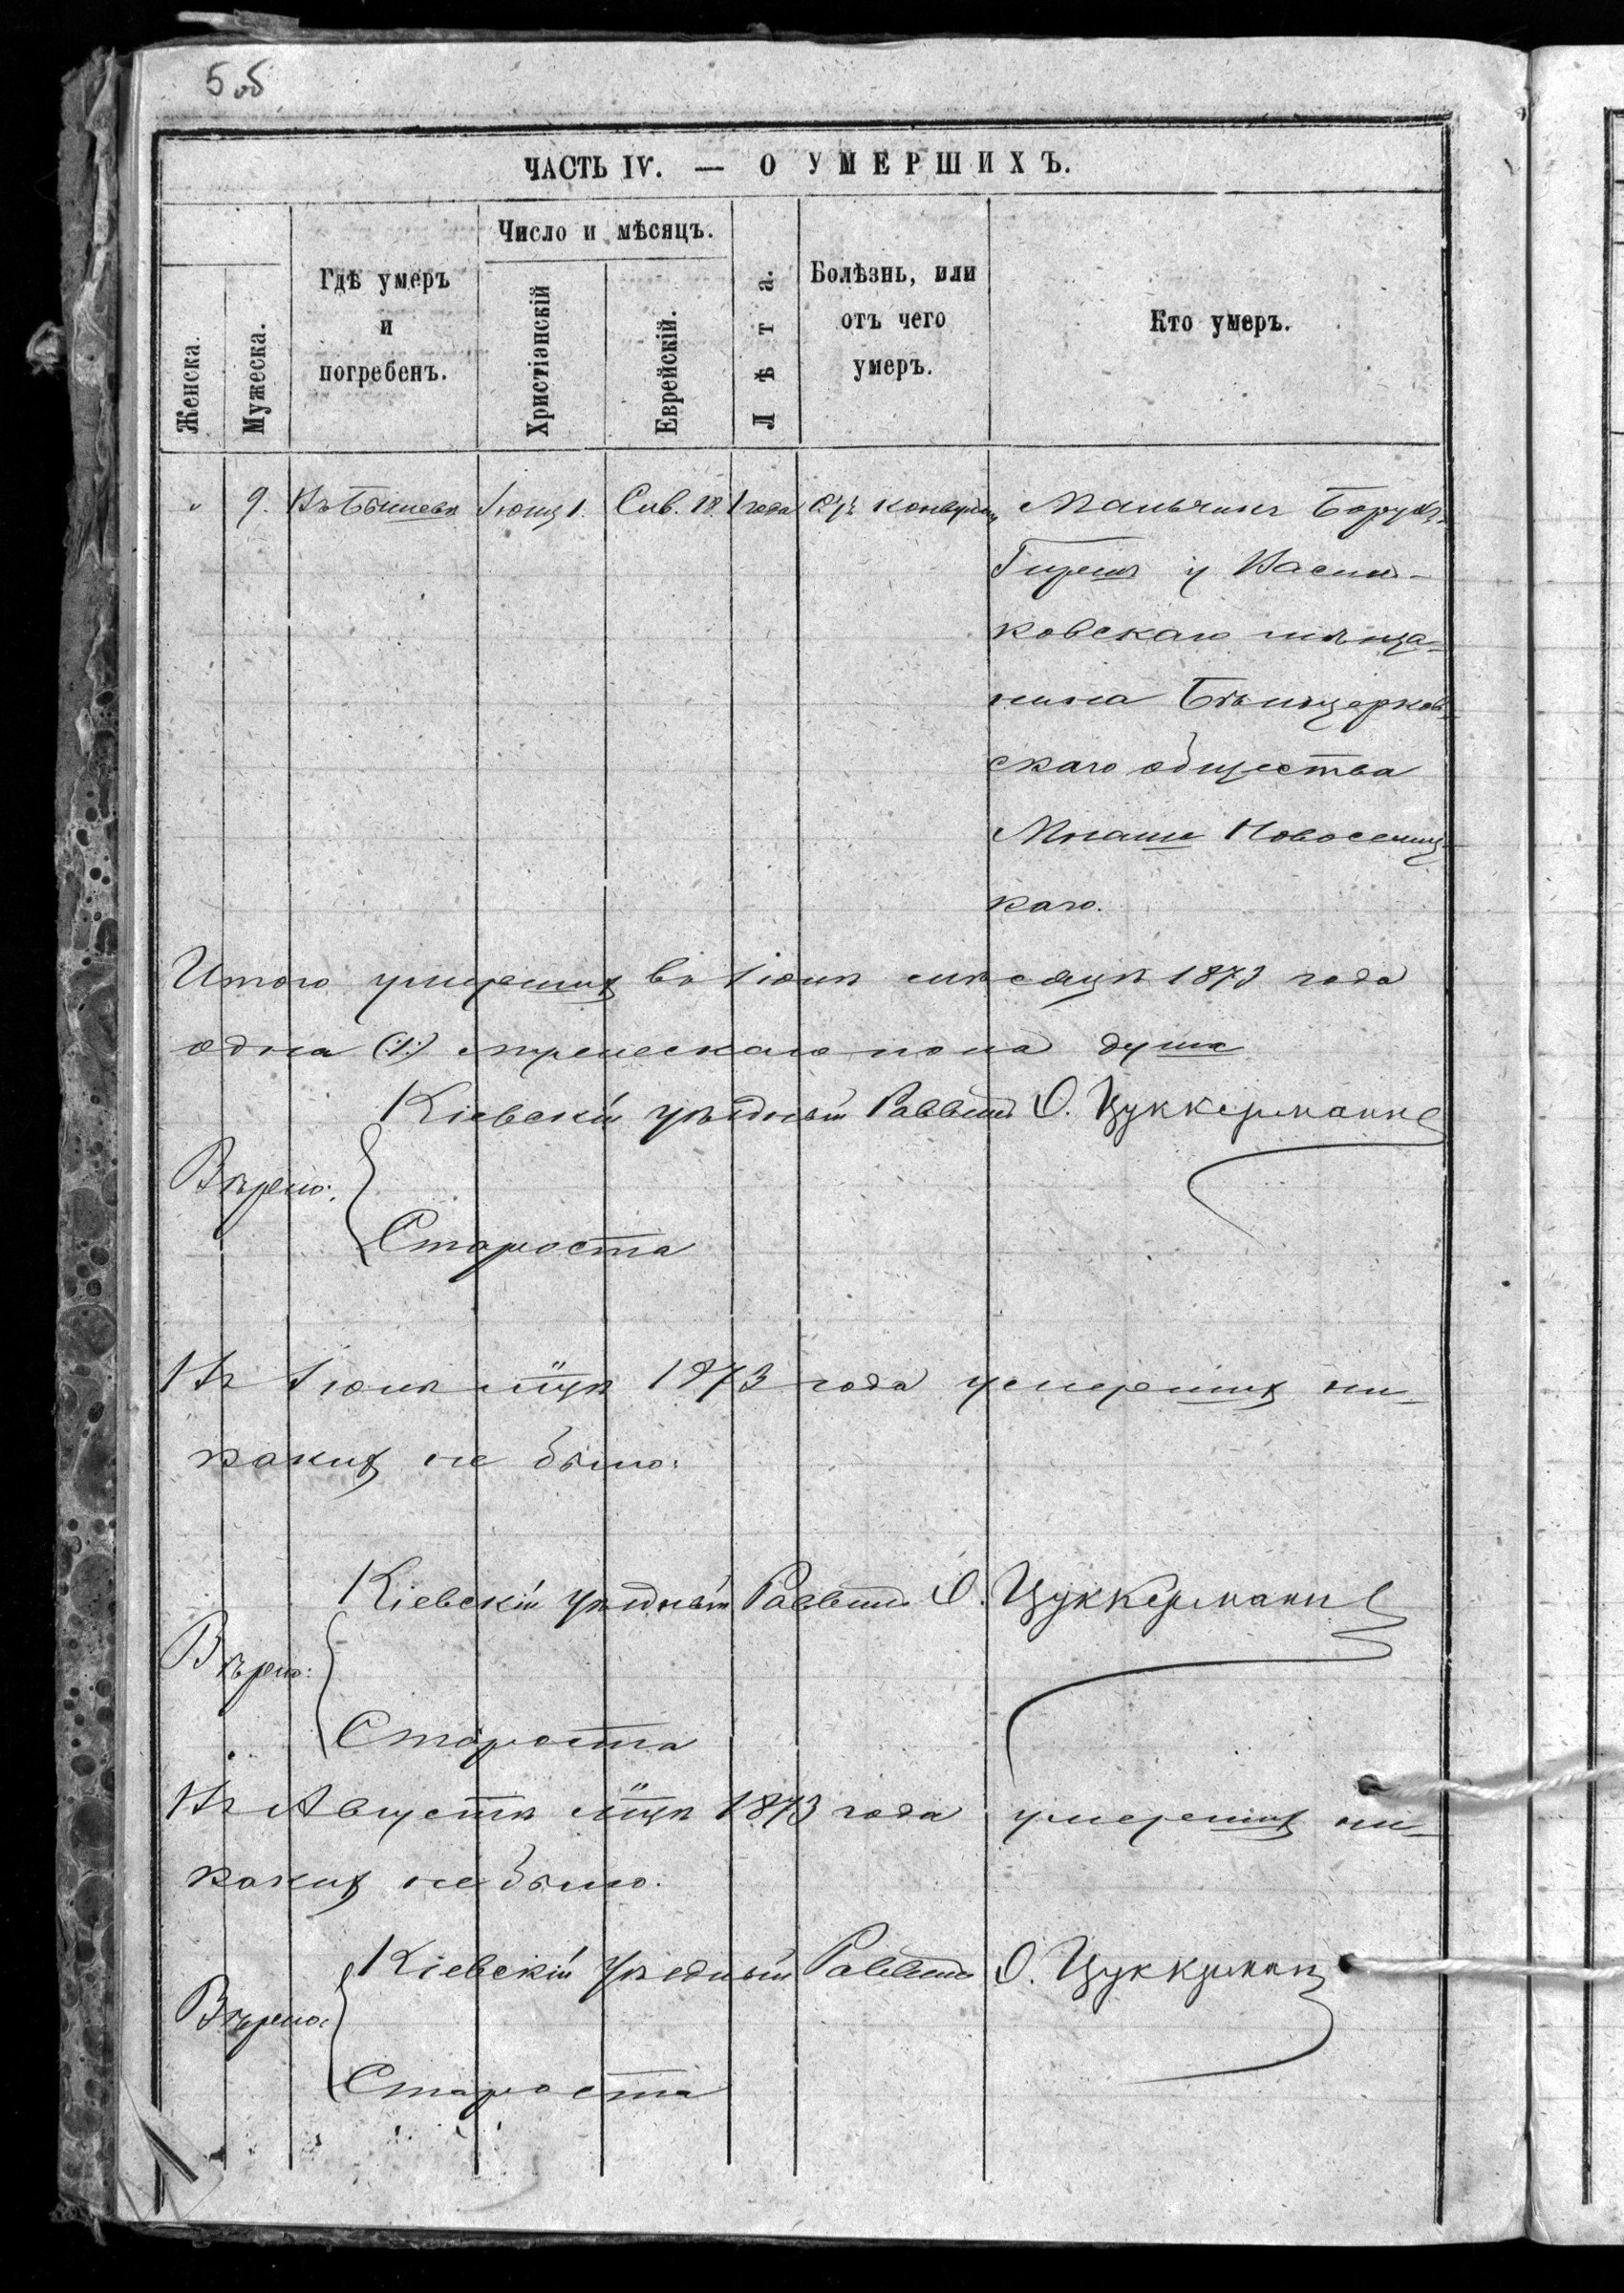 5 об
ЧАСТЬ IV. — О УМЕРШИХЪ.
Женска.
Мужеска.
Гдѣ умеръ
и
погребенъ.
Число и мѣсяцъ.
Христіэнскій
Еврейскій.
Лѣта.
Болѣзнь, или
отъ чего
умеръ.
Кто умеръ.
" 9. Въ Бышевѣ Іюня 1. Сив. 18. 1 года Отъ конвульсіи Мальчикъ Борухъ-
Гершъ у Василь-
ковскаго мѣща-
нина Бѣлоцерков-
скаго общества
Мнаши Новоселиц-
каго.
Итого умершихъ въ Іюнѣ мѣсяцѣ 1873 года
одна (:1:) мужескаго пола душа
Кіевскій уѣздный Раввинъ О. Цуккерманъ
Вѣрно:
Староста
Въ Іюлѣ м-цѣ 1873 года умершихъ ни-
какихъ не было.
Кіевскій уѣздный Раввинъ О. Цуккерманъ
Вѣрно:
Староста
Въ Августѣ м-цѣ 1873 года умершихъ ни-
какихъ не было.
Кіевскій Уѣздный Раввинъ О. Цуккерманъ
Вѣрно:
Староста